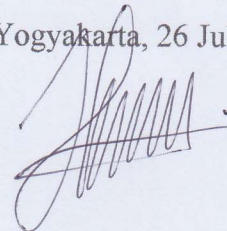 Yogyakarta, 26 Ju